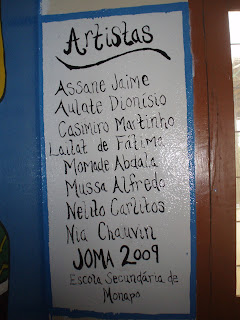 Artistas
Assane Jaime
Aulate Dionísio
Casimiro Martinho
Lailat de Fátima
Momade Abdala
Mussa Alfredo
Nelito Carlitos
Nia Chauvin
JOMA 2009
Escola Secundária de
Monapo